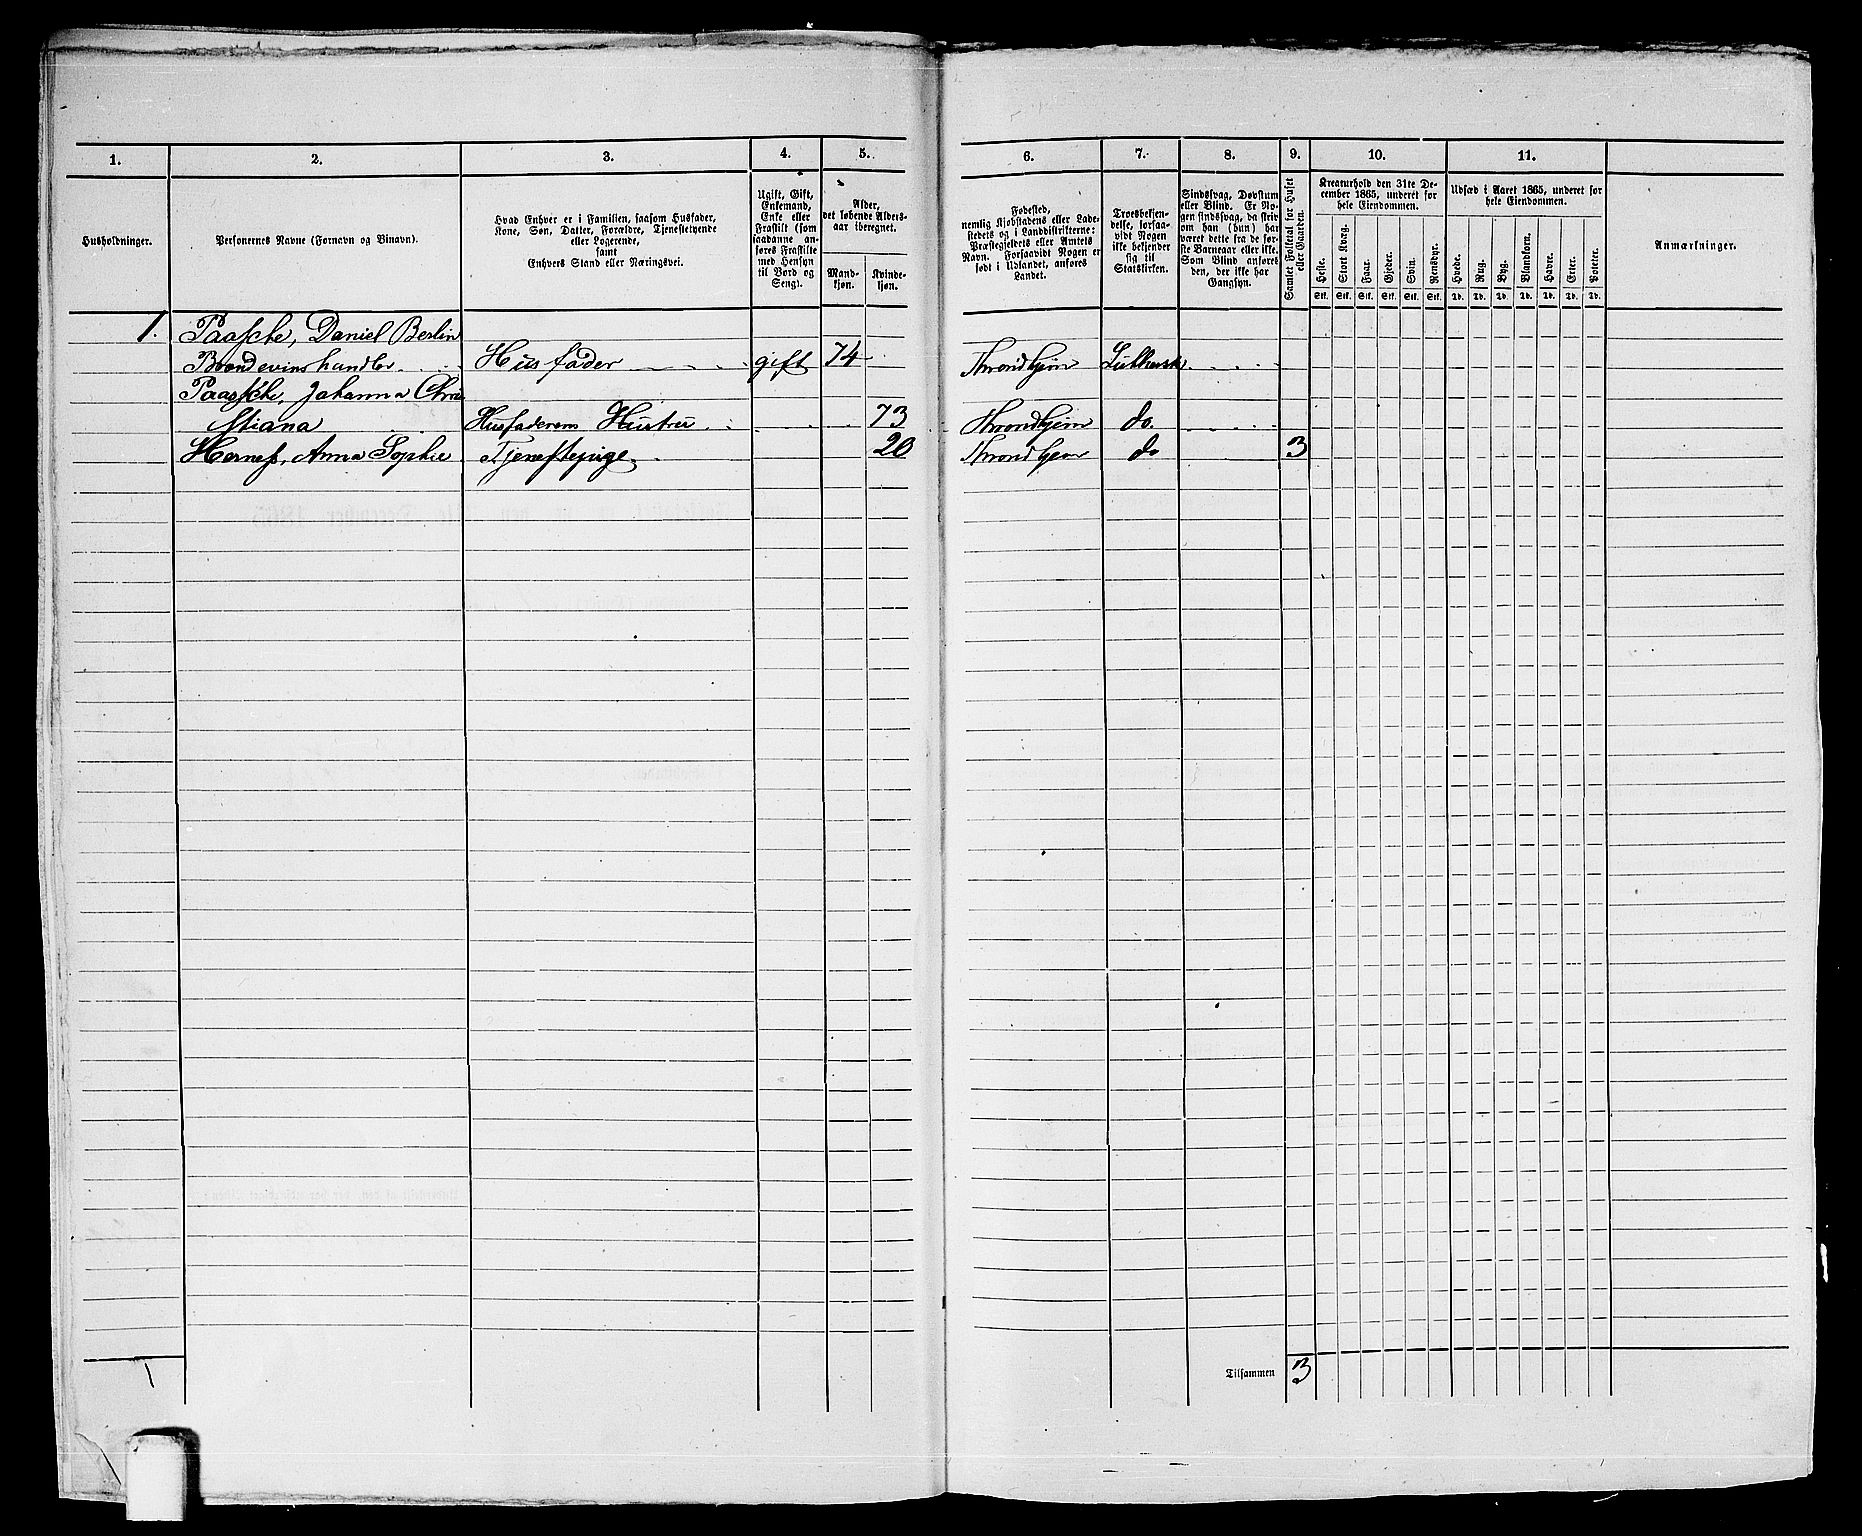 1. 2. 3. 4. 5. 6. 7. 8. 9. 10. 11.
Husholdninger.
Personernes Navne (Fornavn og Binavn).
Hvad Enhver er i Familien, saasom Husfader,
Kone, Søn, Datter, Forældre, Tjenestetyende
eller Logerende,
samt
Enhvers Stand eller Næringsvei.
Ugift, Gift,
Enkemand,
Enke eller
Fraskilt (som
saadanne an-
føres Fraskilte
med Hensyn
til Bord og
Seng).
Alder,
det løbende Alders-
aar iberegnet.
Mand-
kjøn.
Kvinde-
kjøn.
Fødested,
nemlig Kjøbstadens eller Lade-
stedets og i Landdistrikterne:
Præstegjeldets eller Amtets
Navn. Forsaavidt Nogen er
født i Udlandet, anføres
Landet.
Troesbekjen-
delse, forsaa-
vidt Nogen
ikke bekjender
sig til
Statskirken.
Sindssvag, Døvstum
eller Blind. Er No-
gen sindssvag, da skriv
om han (hun) har
været dette fra de før-
ste Barneaar eller ikke.
Som Blind anføres
den, der ikke har
Gangsyn.
Samlet Folketal for Huset
eller Gaarden.
Kreaturhold den 31te De-
cember 1865, underet for
hele Eiendommen.
Heste. Stort Kvæg. Faar. Gjeder. Svin. Rensdyr.
Stk. Stk. Stk. Stk. Stk. Stk.
Udsæd i Aaret 1865, underet for
hele Eiendommen.
Hvede. Rug. Byg. Blandkorn. Havre. Erter. Poteter.
Td. Td. Td. Td. Td. Td. Td.
Anmærkninger.
1. Paasche, Daniel Berlin
Brændevinshandler Husfader gift 74 Throndhjem Luthersk
Paasche, Johanna Chri
stiana Husfaderens Hustru 73 Throndhjem do.
Herness, Anna Sophie Tjenestepige 20 Throndhjem do 3
1 Tilsammen 3